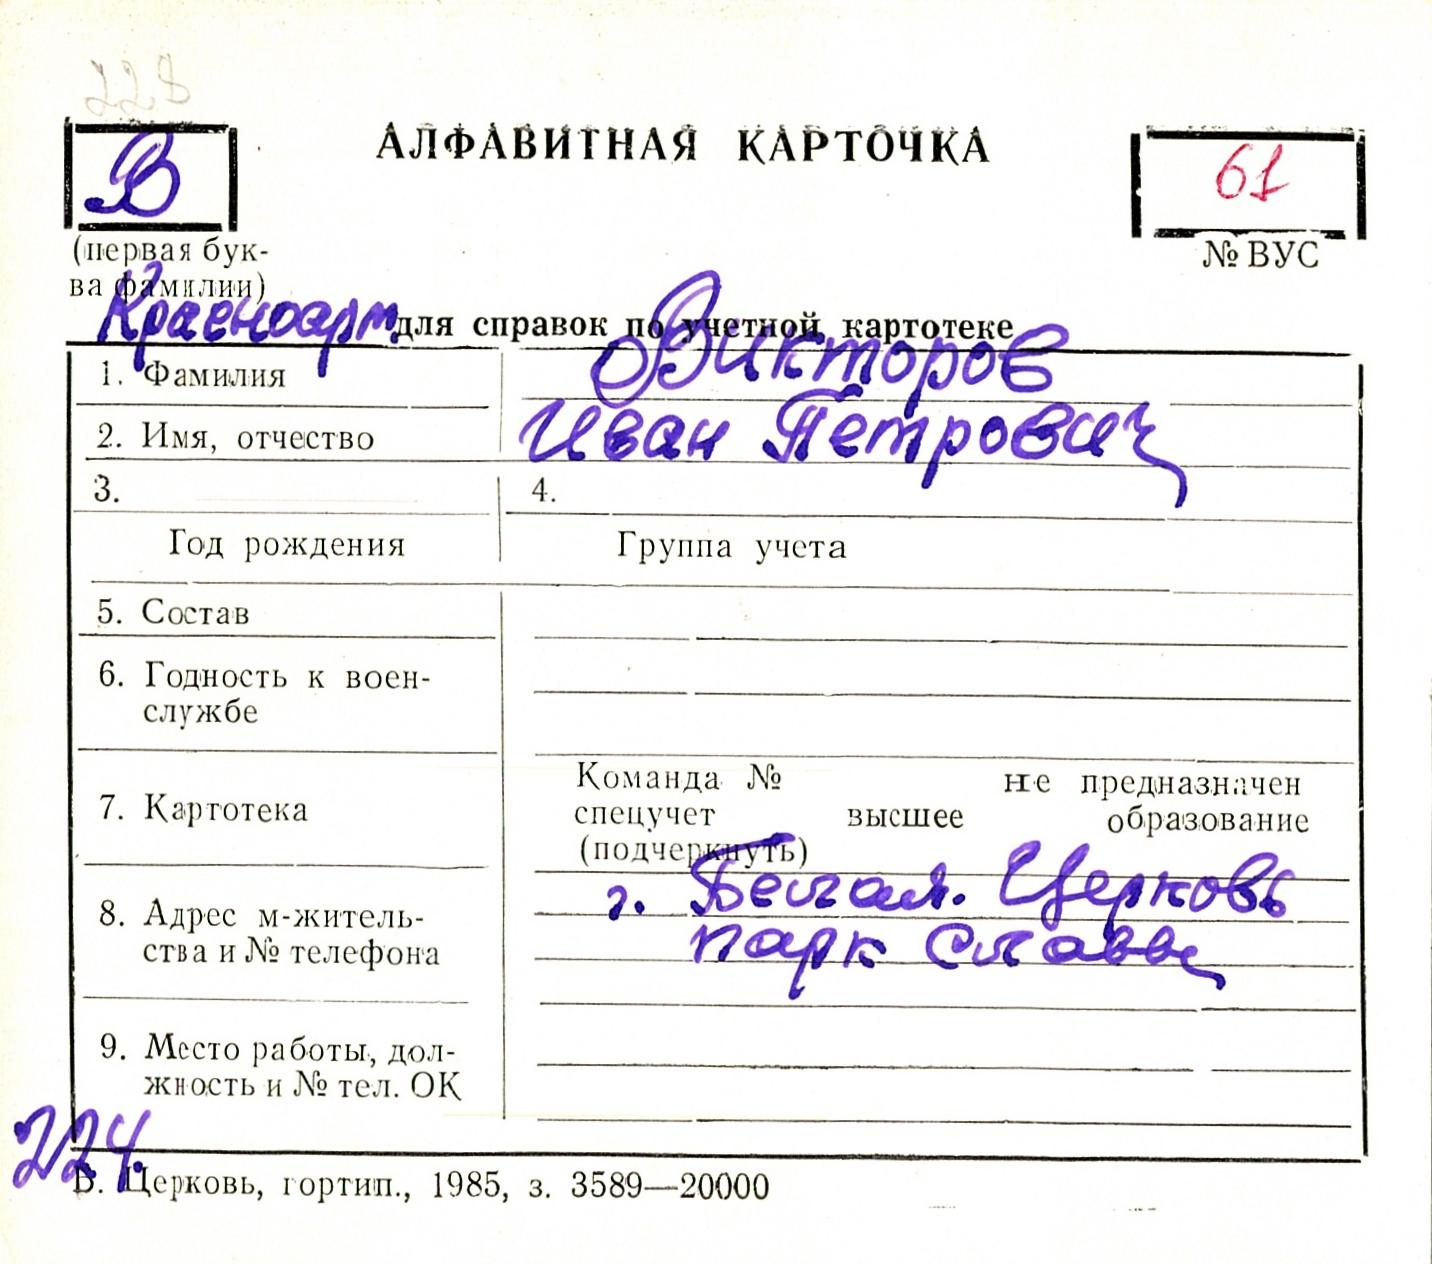 228
В
АЛФАВИТНАЯ КАРТОЧКА
61
(первая бук-
ва фамилии)
№ ВУС
Красноарм
для справок по учетной картотеке
1. Фамилия
Викторов
2. Имя, отчество
Иван Петрович
3.
4.
Год рождения
Группа учета
5. Состав
6. Годность к воен-
службе
7. Картотека
Команда № не предназначен
спецучет высшее образование
(подчеркнуть)
8. Адрес м-житель-
ства и № телефона
г. Белая. Церковь
парк Славы
9. Место работы, дол-
жность и № тел. ОК
224.
Б. Церковь, гортип., 1985, з. 3589—20000